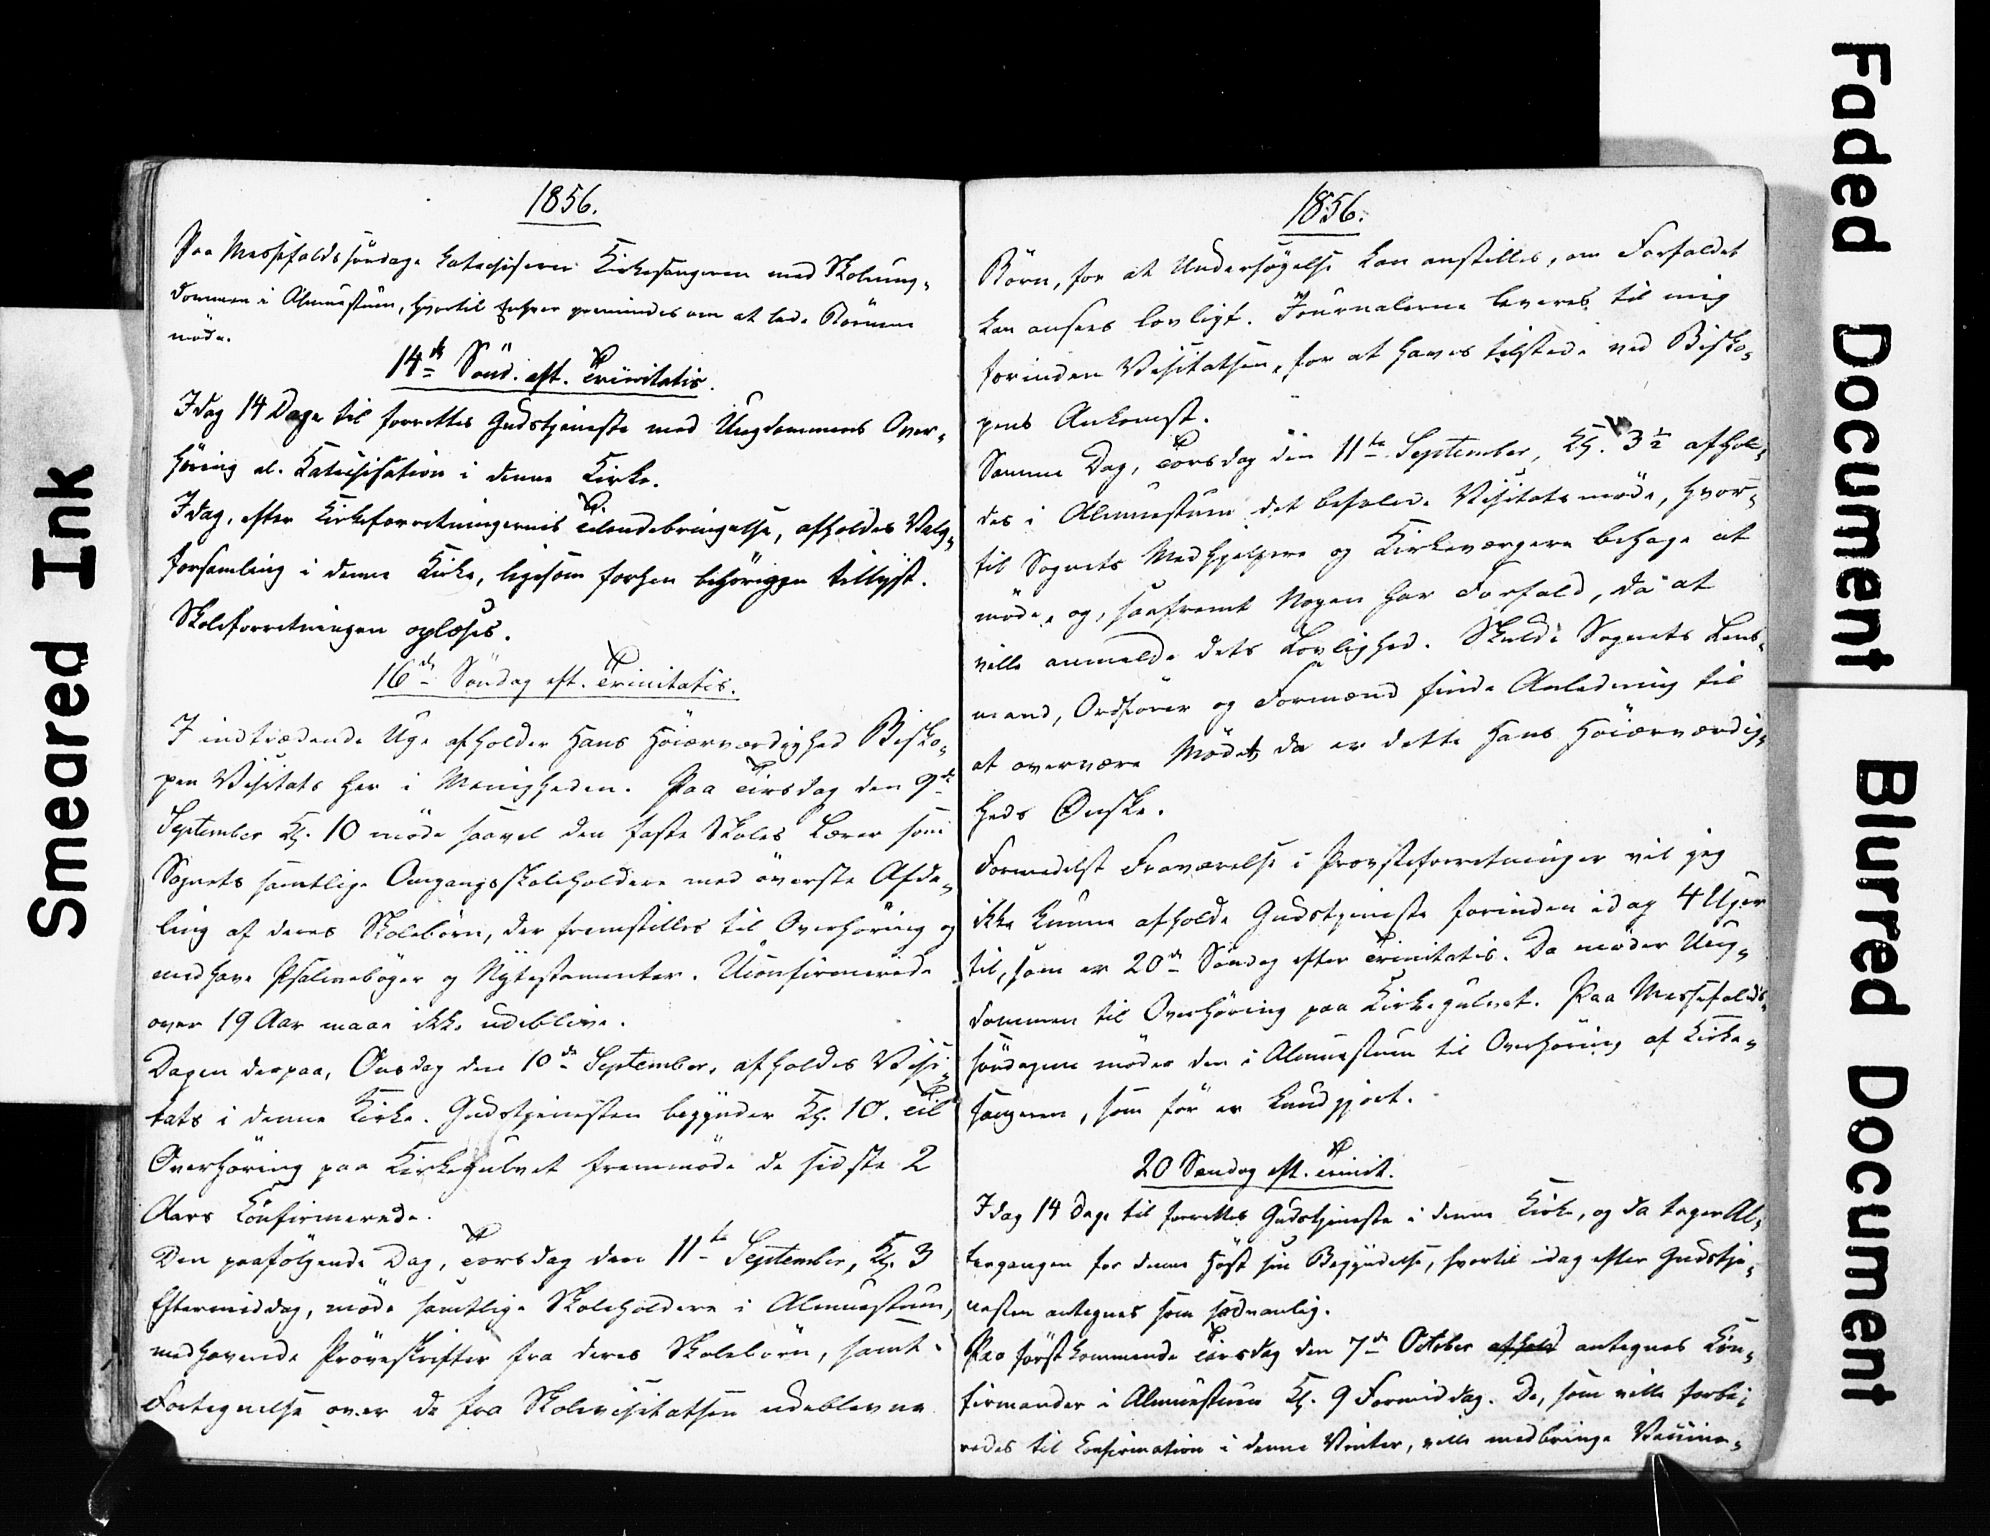 1856.
Paa Messefaldssøndage katechiserer Kirkesangeren med Skoleung-
dommen i Almuestuen, hvortil Enhver paamindes om at lade Børnene
møde.
14de Sönd. eft. Trinitatis.
Idag 14 Dage til forrettes Gudstjeneste med Ungdommens Over-
höring el. Katechisation i denne Kirke.
Idag, efter Kirkeforretningernes Tilendebringelse, afholdes Valg-
forsamling i denne Kirke, ligesom forhen behörigen tillyst.
Skoleforretningen oplæses.
16de Söndag eft. Trinitatis.
I indtrædende Uge afholder Hans Höiærværdighed Bisko-
pen Visitats her i Menigheden. Paa Tirsdag den 9de
September Kl. 10 möde saavel den faste Skoles Lærer som
Sognets samtlige Omgangsskoleholdere med överste Afde-
ling af deres Skolebörn, der fremstilles til Overhöring og
medhave Psalmeböger og Nytestamenter. Uconfirmerede
over 19 Aar maae ikke udeblive.
Dagen derpaa, Onsdag den 10de September, afholdes Visi-
tats i denne Kirke. Gudstjenesten begynder Kl. 10. Til
Overhöring paa Kirkegulvet fremmöde de sidste 2
Aars Confirmerede.
Den paafölgende Dag, Torsdag den 11te September, Kl. 3
Eftermiddag, möde samtlige Skoleholdere i Almuestuen,
medhavende Pröveskrifter fra deres Skolebörn, samt
Fortegnelse over de fra Skolevisitatsen udeblevne
1856.
Börn, for at Undersögelse kan anstilles, om Forfaldet
kan ansees lovligt. Journalerne leveres til mig
forinden Visitatsen, for at haves tilstede ved Bisko-
pens Ankomst.
Samme Dag, Torsdag den 11te September, Kl. 3 1/2 afhol-
des i Almuestuen det befalede Visitatsmöde, hvor-
til Sognets Medhjelpere og Kirkeværgere behage at
möde, og, saafremt Nogen har Forfald, da at
ville anmelde dets Lovlighed. Skulde Sognets Lens-
mand, Ordförer og Formænd finde Anledning til
at overvære Mödet, da er dette Hans Höiærværdig-
heds Önske.
Formedelst Fraværelse i Provsteforretninger vil jeg
ikke kunne afholde Gudstjeneste forinden idag 4 Uger
til, som er 20de Söndag efter Trinitatis. Da möder Ung-
dommen til Overhöring paa Kirkegulvet. Paa Messefalds-
söndagene möder den i Almuestuen til Overhöring af Kirke-
sangeren, som för er kundgjort.
20 Söndag eft. Trinit.
Idag 14 Dage til forrettes Gudstjeneste i denne Kirke, og da tager Al-
tergangen for denne Höst sin Begyndelse, hvortil idag efter Gudstje-
nesten antegnes som sædvanlig.
Paa förstkommende Tirsdag den 7de October afhold antegnes Con-
firmander i Almuestuen Kl. 9 Formiddag. De, som ville forbe-
redes til Confirmation i denne Vinter, ville medbringe Vaccine-
Smeared Ink
Faded Document
Blurred Document